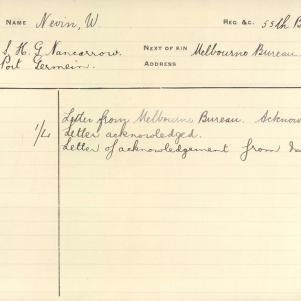 NAME Nevin, W. REG. &C. 55th B
S. H. G. Nancarrow. NEXT OF KIN Melbourne Bureau
Port Germein. ADDRESS
Letter from Melbourne Bureau. Acknow
1/4 Letter acknowledged.
Letter of acknowledgement from